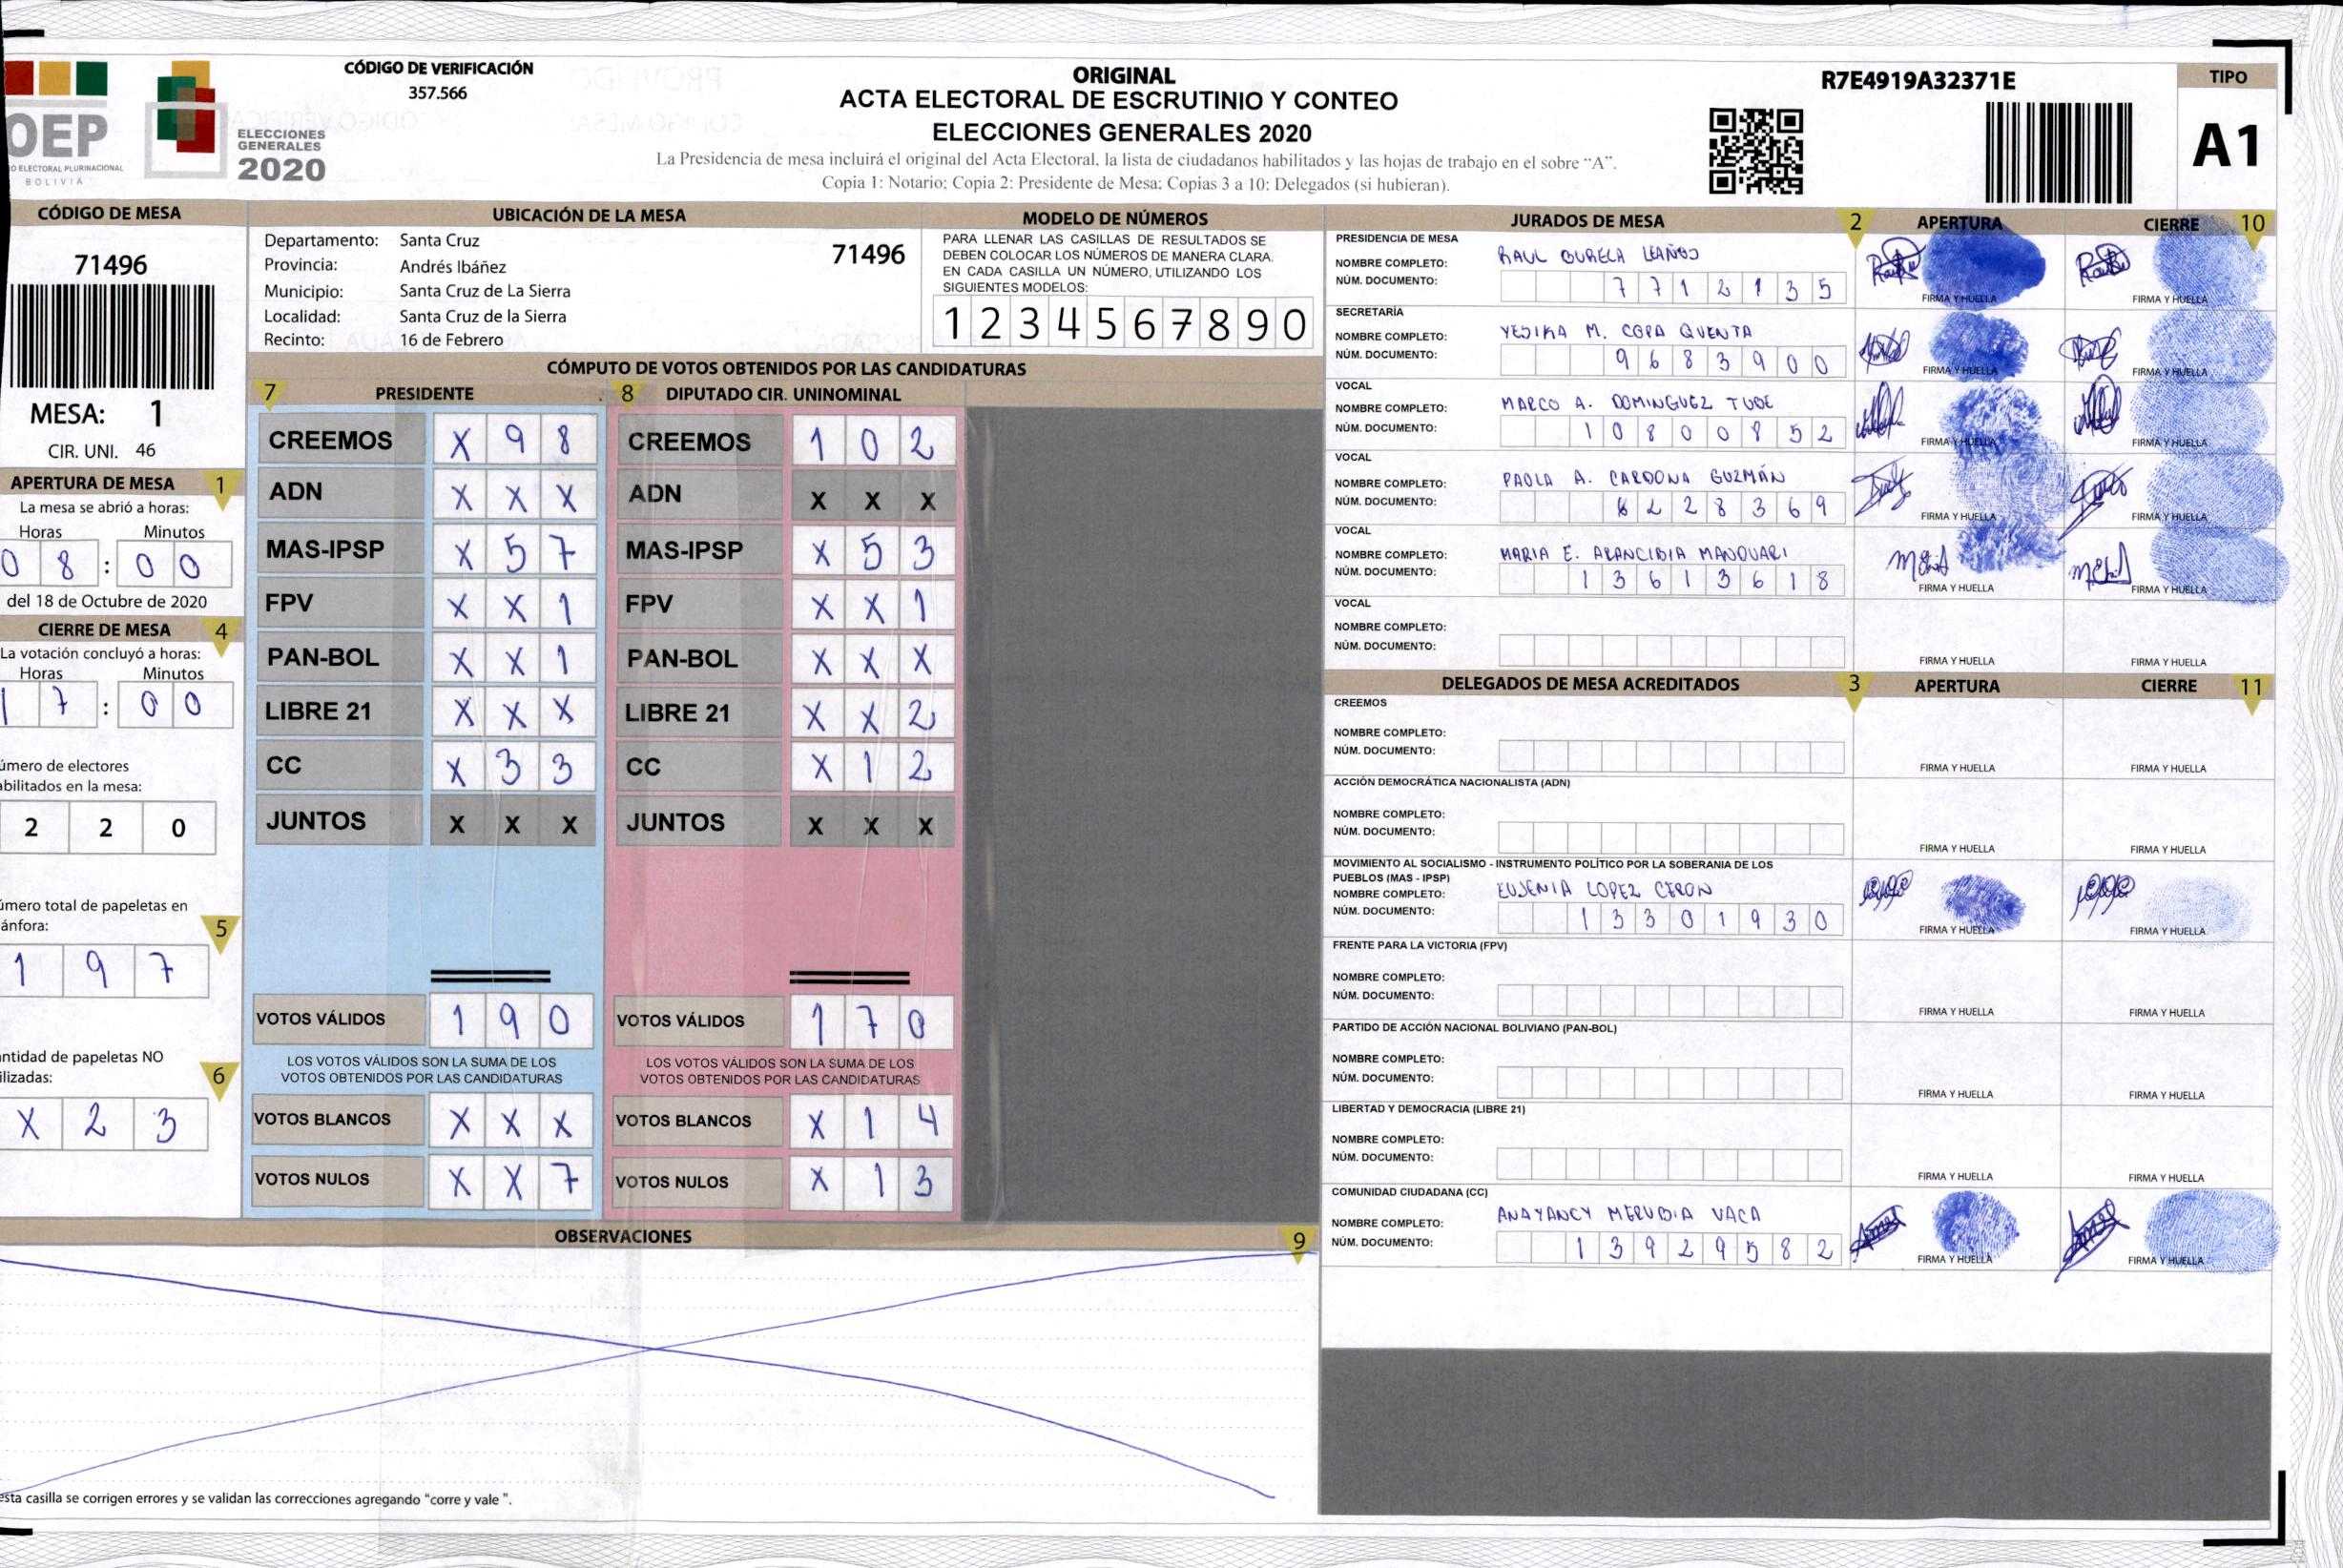 CÓDIGO DE VERIFICACIÓN
357.566
OEP
O ELECTORAL PLURINACIONAL
BOLIVIA
ELECCIONES
GENERALES
2020
ORIGINAL
ACTA ELECTORAL DE ESCRUTINIO Y CONTEO
ELECCIONES GENERALES 2020
La Presidencia de mesa incluirá el original del Acta Electoral, la lista de ciudadanos habilitados y las hojas de trabajo en el sobre “A”.
Copia 1: Notario; Copia 2: Presidente de Mesa; Copias 3 a 10: Delegados (si hubieran).
R7E4919A32371E
TIPO
A1
CÓDIGO DE MESA
71496
MESA: 1
CIR. UNI. 46
APERTURA DE MESA 1
La mesa se abrió a horas:
Horas Minutos
0 8 : 0 0
del 18 de Octubre de 2020
CIERRE DE MESA 4
La votación concluyó a horas:
Horas Minutos
1 7 : 0 0
úmero de electores
abilitados en la mesa:
2 2 0
úmero total de papeletas en
ánfora: 5
1 9 7
antidad de papeletas NO
ilizadas: 6
X 2 3
UBICACIÓN DE LA MESA
Departamento: Santa Cruz 71496
Provincia: Andrés Ibáñez
Municipio: Santa Cruz de La Sierra
Localidad: Santa Cruz de la Sierra
Recinto: 16 de Febrero
MODELO DE NÚMEROS
PARA LLENAR LAS CASILLAS DE RESULTADOS SE
DEBEN COLOCAR LOS NÚMEROS DE MANERA CLARA.
EN CADA CASILLA UN NÚMERO, UTILIZANDO LOS
SIGUIENTES MODELOS:
1 2 3 4 5 6 7 8 9 0
CÓMPUTO DE VOTOS OBTENIDOS POR LAS CANDIDATURAS
7 PRESIDENTE 8 DIPUTADO CIR. UNINOMINAL
CREEMOS X 9 8 CREEMOS 1 0 2
ADN X X X ADN X X X
MAS-IPSP X 5 7 MAS-IPSP X 5 3
FPV X X 1 FPV X X 1
PAN-BOL X X 1 PAN-BOL X X X
LIBRE 21 X X X LIBRE 21 X X 2
CC X 3 3 CC X 1 2
JUNTOS X X X JUNTOS X X X
VOTOS VÁLIDOS 1 9 0 VOTOS VÁLIDOS 1 7 0
LOS VOTOS VÁLIDOS SON LA SUMA DE LOS LOS VOTOS VÁLIDOS SON LA SUMA DE LOS
VOTOS OBTENIDOS POR LAS CANDIDATURAS VOTOS OBTENIDOS POR LAS CANDIDATURAS
VOTOS BLANCOS X X X VOTOS BLANCOS X 1 4
VOTOS NULOS X X 7 VOTOS NULOS X 1 3
OBSERVACIONES 9
esta casilla se corrigen errores y se validan las correcciones agregando “corre y vale ”.
JURADOS DE MESA 2 APERTURA CIERRE 10
PRESIDENCIA DE MESA
NOMBRE COMPLETO: RAUL LEAÑOS
NÚM. DOCUMENTO: 7 7 1 2 1 3 5 FIRMA Y HUELLA FIRMA Y HUELLA
SECRETARÍA
NOMBRE COMPLETO: YESIKA M. COPA QUENTA
NÚM. DOCUMENTO: 9 6 8 3 9 0 0 FIRMA Y HUELLA FIRMA Y HUELLA
VOCAL
NOMBRE COMPLETO: MARCO A. DOMINGUEZ
NÚM. DOCUMENTO: 1 0 8 0 0 8 5 2 FIRMA Y HUELLA FIRMA Y HUELLA
VOCAL
NOMBRE COMPLETO: PAOLA A. CARDONA GUZMÁN
NÚM. DOCUMENTO: 2 8 3 6 9 FIRMA Y HUELLA FIRMA Y HUELLA
VOCAL
NOMBRE COMPLETO: MARIA E. ARANCIBIA MANQUARI
NÚM. DOCUMENTO: 1 3 6 1 3 6 1 8 FIRMA Y HUELLA FIRMA Y HUELLA
VOCAL
NOMBRE COMPLETO:
NÚM. DOCUMENTO: FIRMA Y HUELLA FIRMA Y HUELLA
DELEGADOS DE MESA ACREDITADOS 3 APERTURA CIERRE 11
CREEMOS
NOMBRE COMPLETO:
NÚM. DOCUMENTO: FIRMA Y HUELLA FIRMA Y HUELLA
ACCIÓN DEMOCRÁTICA NACIONALISTA (ADN)
NOMBRE COMPLETO:
NÚM. DOCUMENTO: FIRMA Y HUELLA FIRMA Y HUELLA
MOVIMIENTO AL SOCIALISMO - INSTRUMENTO POLÍTICO POR LA SOBERANIA DE LOS
PUEBLOS (MAS - IPSP)
NOMBRE COMPLETO: EUJENIA LOPEZ CERON
NÚM. DOCUMENTO: 1 3 3 0 1 9 3 0 FIRMA Y HUELLA FIRMA Y HUELLA
FRENTE PARA LA VICTORIA (FPV)
NOMBRE COMPLETO:
NÚM. DOCUMENTO: FIRMA Y HUELLA FIRMA Y HUELLA
PARTIDO DE ACCIÓN NACIONAL BOLIVIANO (PAN-BOL)
NOMBRE COMPLETO:
NÚM. DOCUMENTO: FIRMA Y HUELLA FIRMA Y HUELLA
LIBERTAD Y DEMOCRACIA (LIBRE 21)
NOMBRE COMPLETO:
NÚM. DOCUMENTO: FIRMA Y HUELLA FIRMA Y HUELLA
COMUNIDAD CIUDADANA (CC)
NOMBRE COMPLETO: ANAYANCY MERUBIA VACA
NÚM. DOCUMENTO: 1 3 9 2 9 5 8 2 FIRMA Y HUELLA FIRMA Y HUELLA